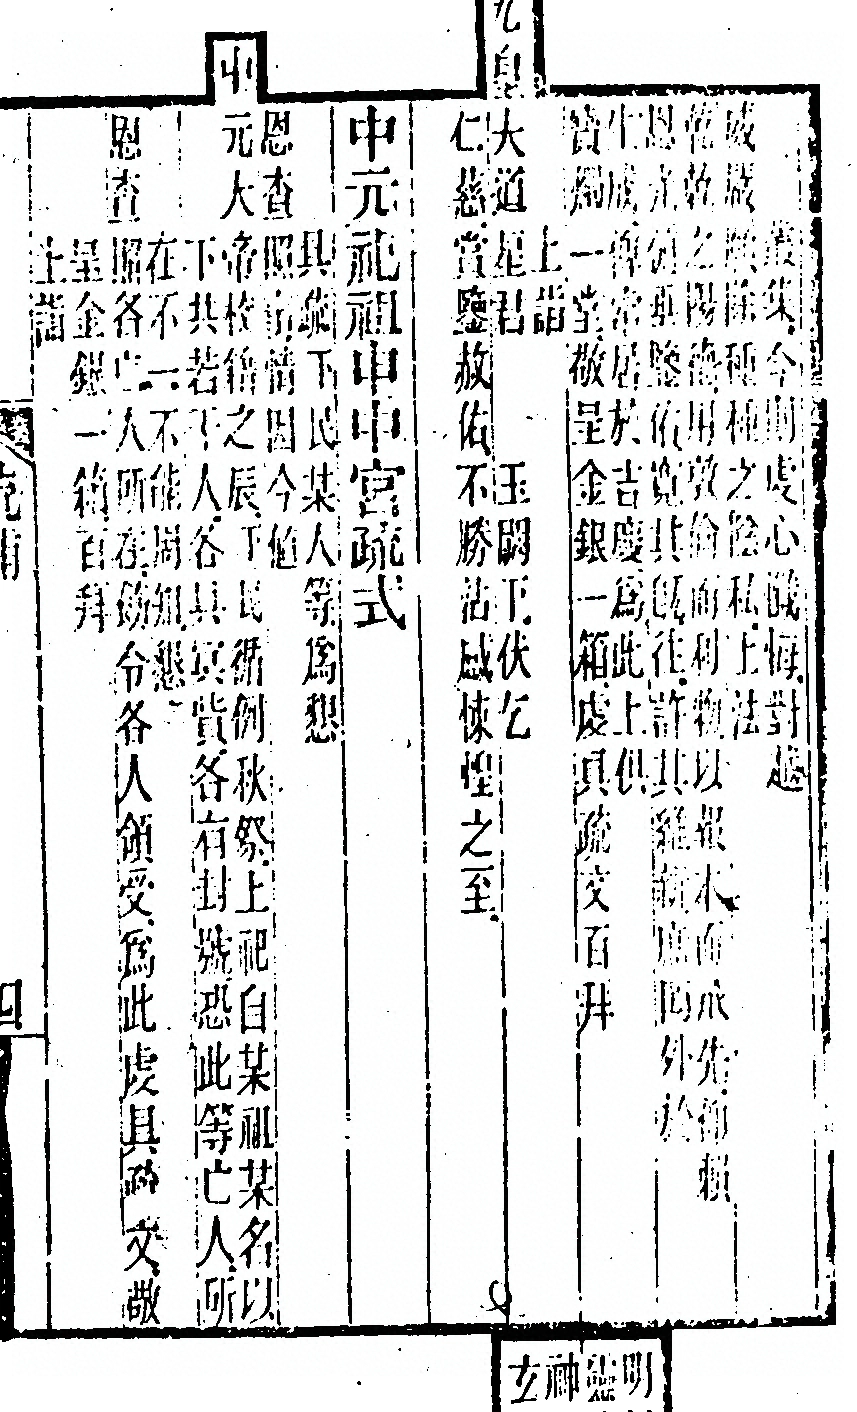 叢集今則虔心懺悔對越
威嚴赦除種種之陰私上法
乾乾之陽德用敦倫而利物以報本而承先仰賴
恩光俯垂鑒佑寬其既往許其維新庶同外於
生成俾常居於吉慶爲此上供
寶燭一堂敬呈金銀一箱虔具疏文百拜
上詣
九皇大道星君　玉闕下伏乞
仁慈賞鑒赦佑不勝沾感悚惶之至
中元祀祖申中宮疏式
具疏下民某人等爲懇
恩查照備情因今值
中元大帝校籍之辰下民循例秋祭上祀自某祖某名以
下共若干人各具冥貲各有封號恐此等亡人所
在不一不能周知懇
恩查照各亡人所在飭令各人領受爲此虔具疏文敬
呈金銀一箱百拜
上詣
四
明靈神玄